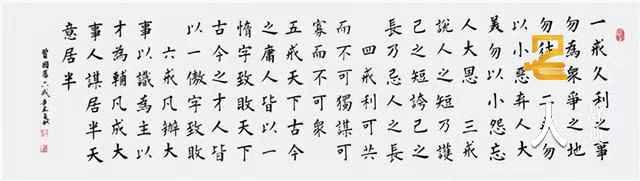 一戒久利之事
勿為眾爭之地
勿往 二戒勿
以小惡弃人大
美勿以小怨忘
人大恩 三戒
說人之短乃護
己之短誇己之
長乃忌人之長
四戒利可共
而不可獨謀可
寡而不可眾
五戒天下古今
之庸人皆以一
惰字致敗天下
古今之才人皆
以一傲字致敗
六戒凡辦大
事以識為主以
才為輔凡成大
事人謀居半天
意居半
曾國藩六戒